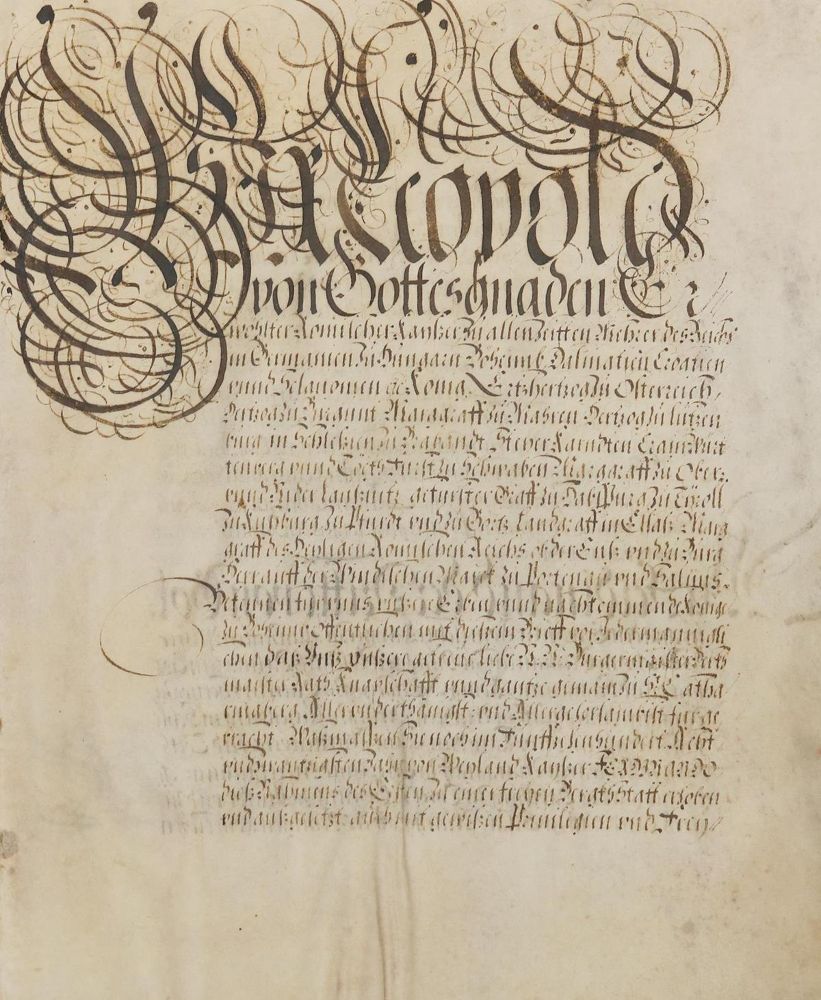 Wir Leopold
von Gottes gnaden Er-
wöhlter Römischer Kayser zu allen Zeitten Mehrer des Reichs
in Germanien zu Hungarn Böheimb Dalmatien Croatien
vnnd Sclauonien etc König Ertzhertzog zu Österreich,
Hertzog zu Burgunt Marggraff zu Mähren Hertzog zu Lützen-
burg in Schlesien zu Brabandt, Steyer Kärndten Crain Würt-
tenberg vnnd Töckh Fürst zu Schwaben Marggraff zu Ober
vnnd Nider Laußnitz gefürster Graff zu Habspurg zu Tyroll
zu Kyburg zu Pfürdt vnd zu Görtz Landgraff in Elsaß Marg-
graff des Heyligen Römischen Reichs ob der Enß vnd zu Burg
Herr auff der Windischen Marck zu Portenau vnd Salins.
Bekennen für vnns vnßere Erben vnnd nachkommende König
zu Böheimb offentlichen mit dießem Brieff vor Jedermännigli-
chen daß Vnß vnßere getreue liebe N. N. Burgermeister Berk-
maister Rath Knapschafft vnnd gantze gemain zu St Catha
rinaberg Allervnderthänigst vnd Allergehorsambist für ge-
bracht Waßmaßen Sie noch im Fünffzehenhundert Acht
vndzwantzigsten Jahr von Weyland Kayßer FERDINANDO
dieß Nahmens des Ersten zu einer freyen Bergkh Statt erhoben
vnd außgesetzt auch mit gewißen Privilegien vnd Frey-